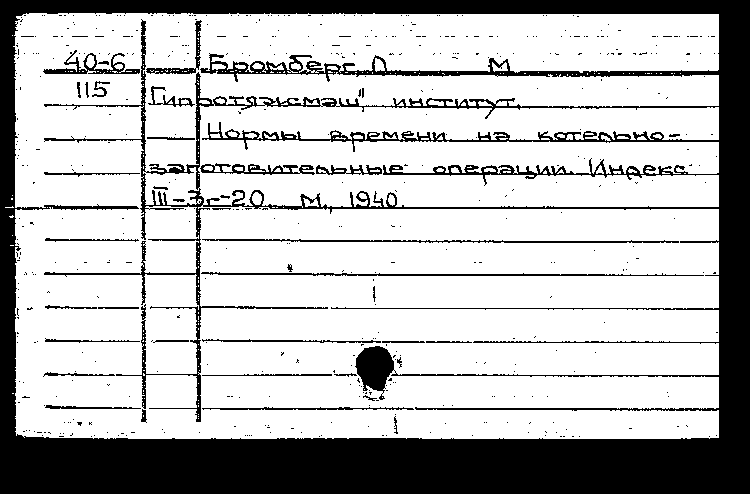 40-6 Бромберг, Л М
115 Гипротяжмаш", институт.
Нормы времени на котельно-
заготовительные операции. Индекс
III-3г-20. М., 1940.